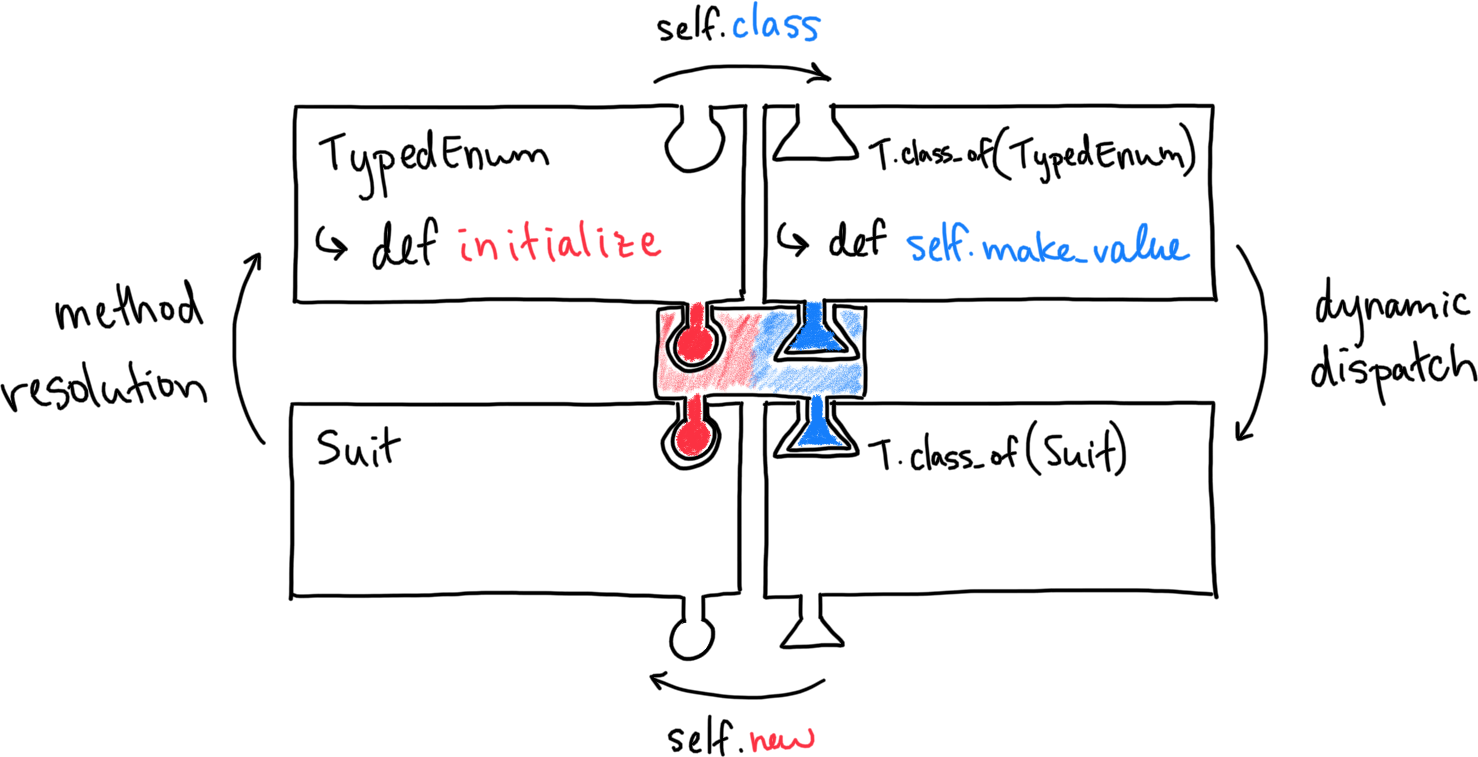 self.class
TypedEnum
↳ def initialize
T.class_of(TypedEnum)
↳ def self.make_value
method
resolution
dynamic
dispatch
Suit
T.class_of(Suit)
self.new